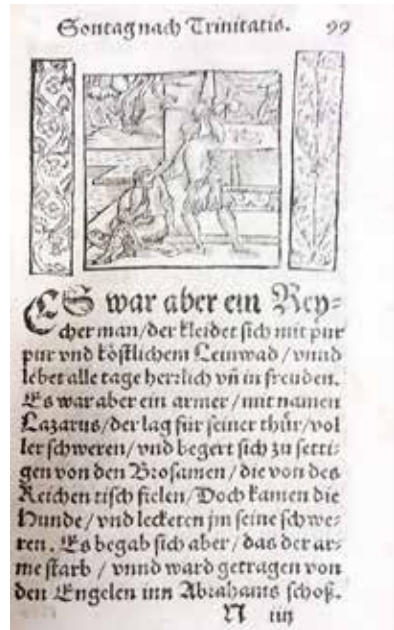 Sontag nach Trinitatis. 99
ES war aber ein Rey⸗
cher man/der kleidet sich mit pur
pur vnd köstlichem Leinwad/vnnd
lebet alle tage herrlich vñ in freuden.
Es war aber ein armer/mit namen
Lazarus/der lag für seiner thür/vol
ler schweren/vnd begert sich zu setti⸗
gen von den Brosamen/die von des
Reichen tisch fielen/Doch kamen die
Hunde/vnd lecketen jm seine schwe⸗
ren. Es begab sich aber/das der ar⸗
me starb/vnnd ward getragen von
den Engelen inn Abrahams schoß.
N iiij